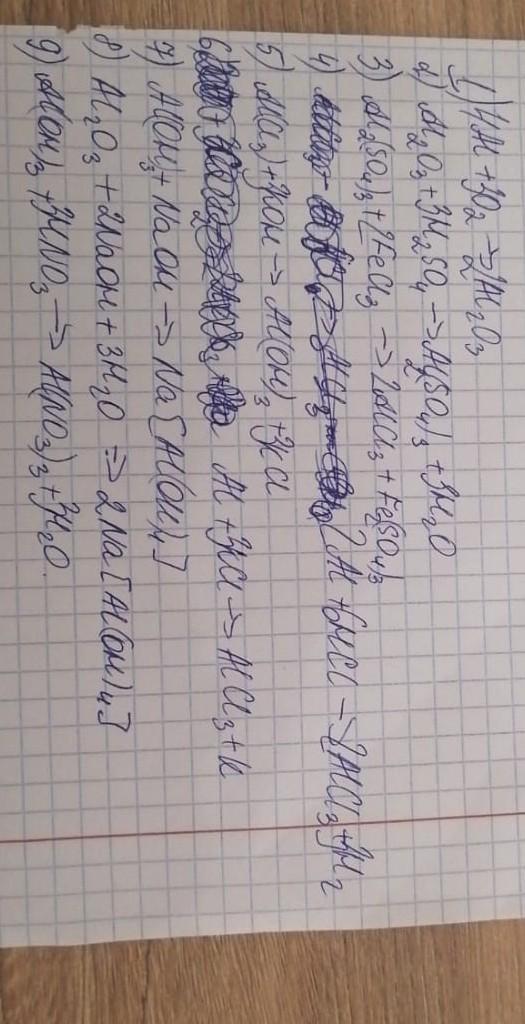 1) 4Al + 3O₂ → 2Al₂O₃
2) Al₂O₃ + 3H₂SO₄ → Al₂(SO₄)₃ + 3H₂O
3) Al₂(SO₄)₃ + 2FeCl₃ → 2AlCl₃ + Fe₂(SO₄)₃
4) 2Al + 6HCl → 2AlCl₃ + 3H₂
5) AlCl₃ + 3KOH → Al(OH)₃ + 3KCl
6) Al + 3KCl → AlCl₃ + K
7) Al(OH)₃ + NaOH → Na[Al(OH)₄]
8) Al₂O₃ + 2NaOH + 3H₂O => 2Na[Al(OH)₄]
9) Al(OH)₃ + 3HNO₃ → Al(NO₃)₃ + 3H₂O.